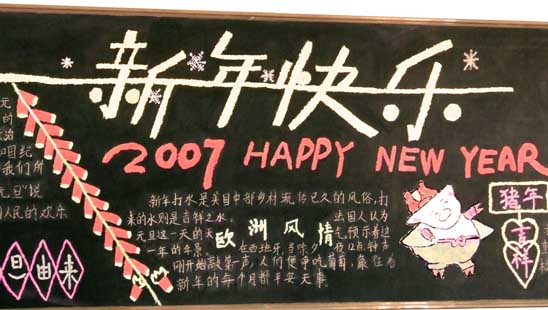 新年快乐
2007 HAPPY NEW YEAR
元
的
治
咱纪
我们所
元旦"说
人民的欢乐
旦由来
新年打水是英国中部乡村流传已久的风俗,打
来的水则是吉祥之水。
元旦这一天的
一年的年景
欧洲风情
在西班牙,当除夕
刚开始敲第一声,人们便争吃葡萄,象征着
新年的每个月都平安无事。
出国人认为
气预示着这
夜12点钟声
猪年
吉祥